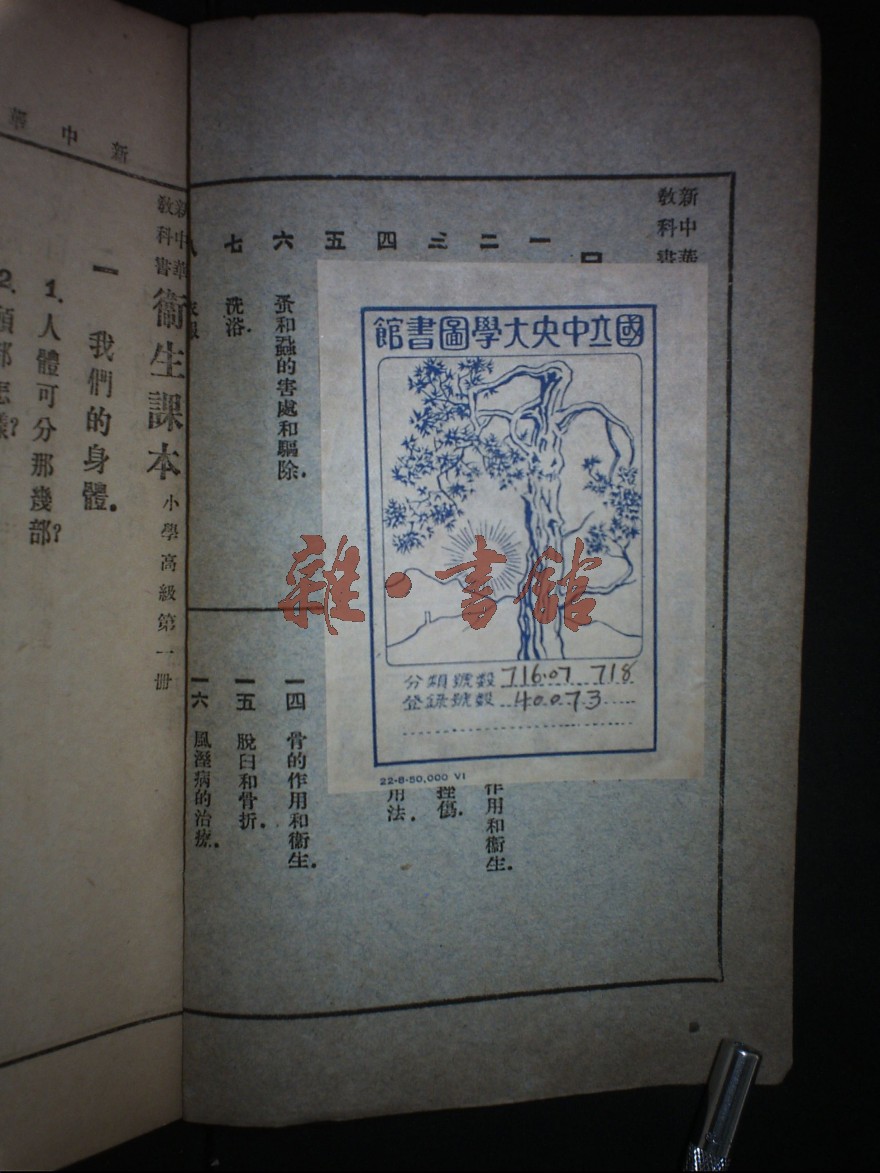 新中華
教科書
一
二
三
四
五
六 蚤和蝨的害處和驅除.
七 洗浴.
作用和衞生.
挫傷.
用法.
一四 骨的作用和衞生.
一五 脫臼和骨折.
一六 風溼病的治療.
國立中央大學圖書館
分類號數 716.07 718
登錄號數 40073
22-8-50,000 VI
雜·書館
新中華
新中華
教科書
衞生課本 小學高級第一册
一 我們的身體.
1. 人體可分那幾部?
2. 頭部怎樣?